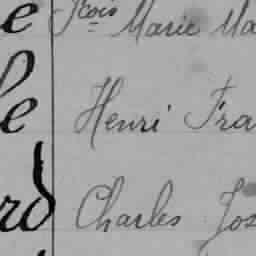 e Fcois Marie Ma
le Henri Fra
rd Charles Jos